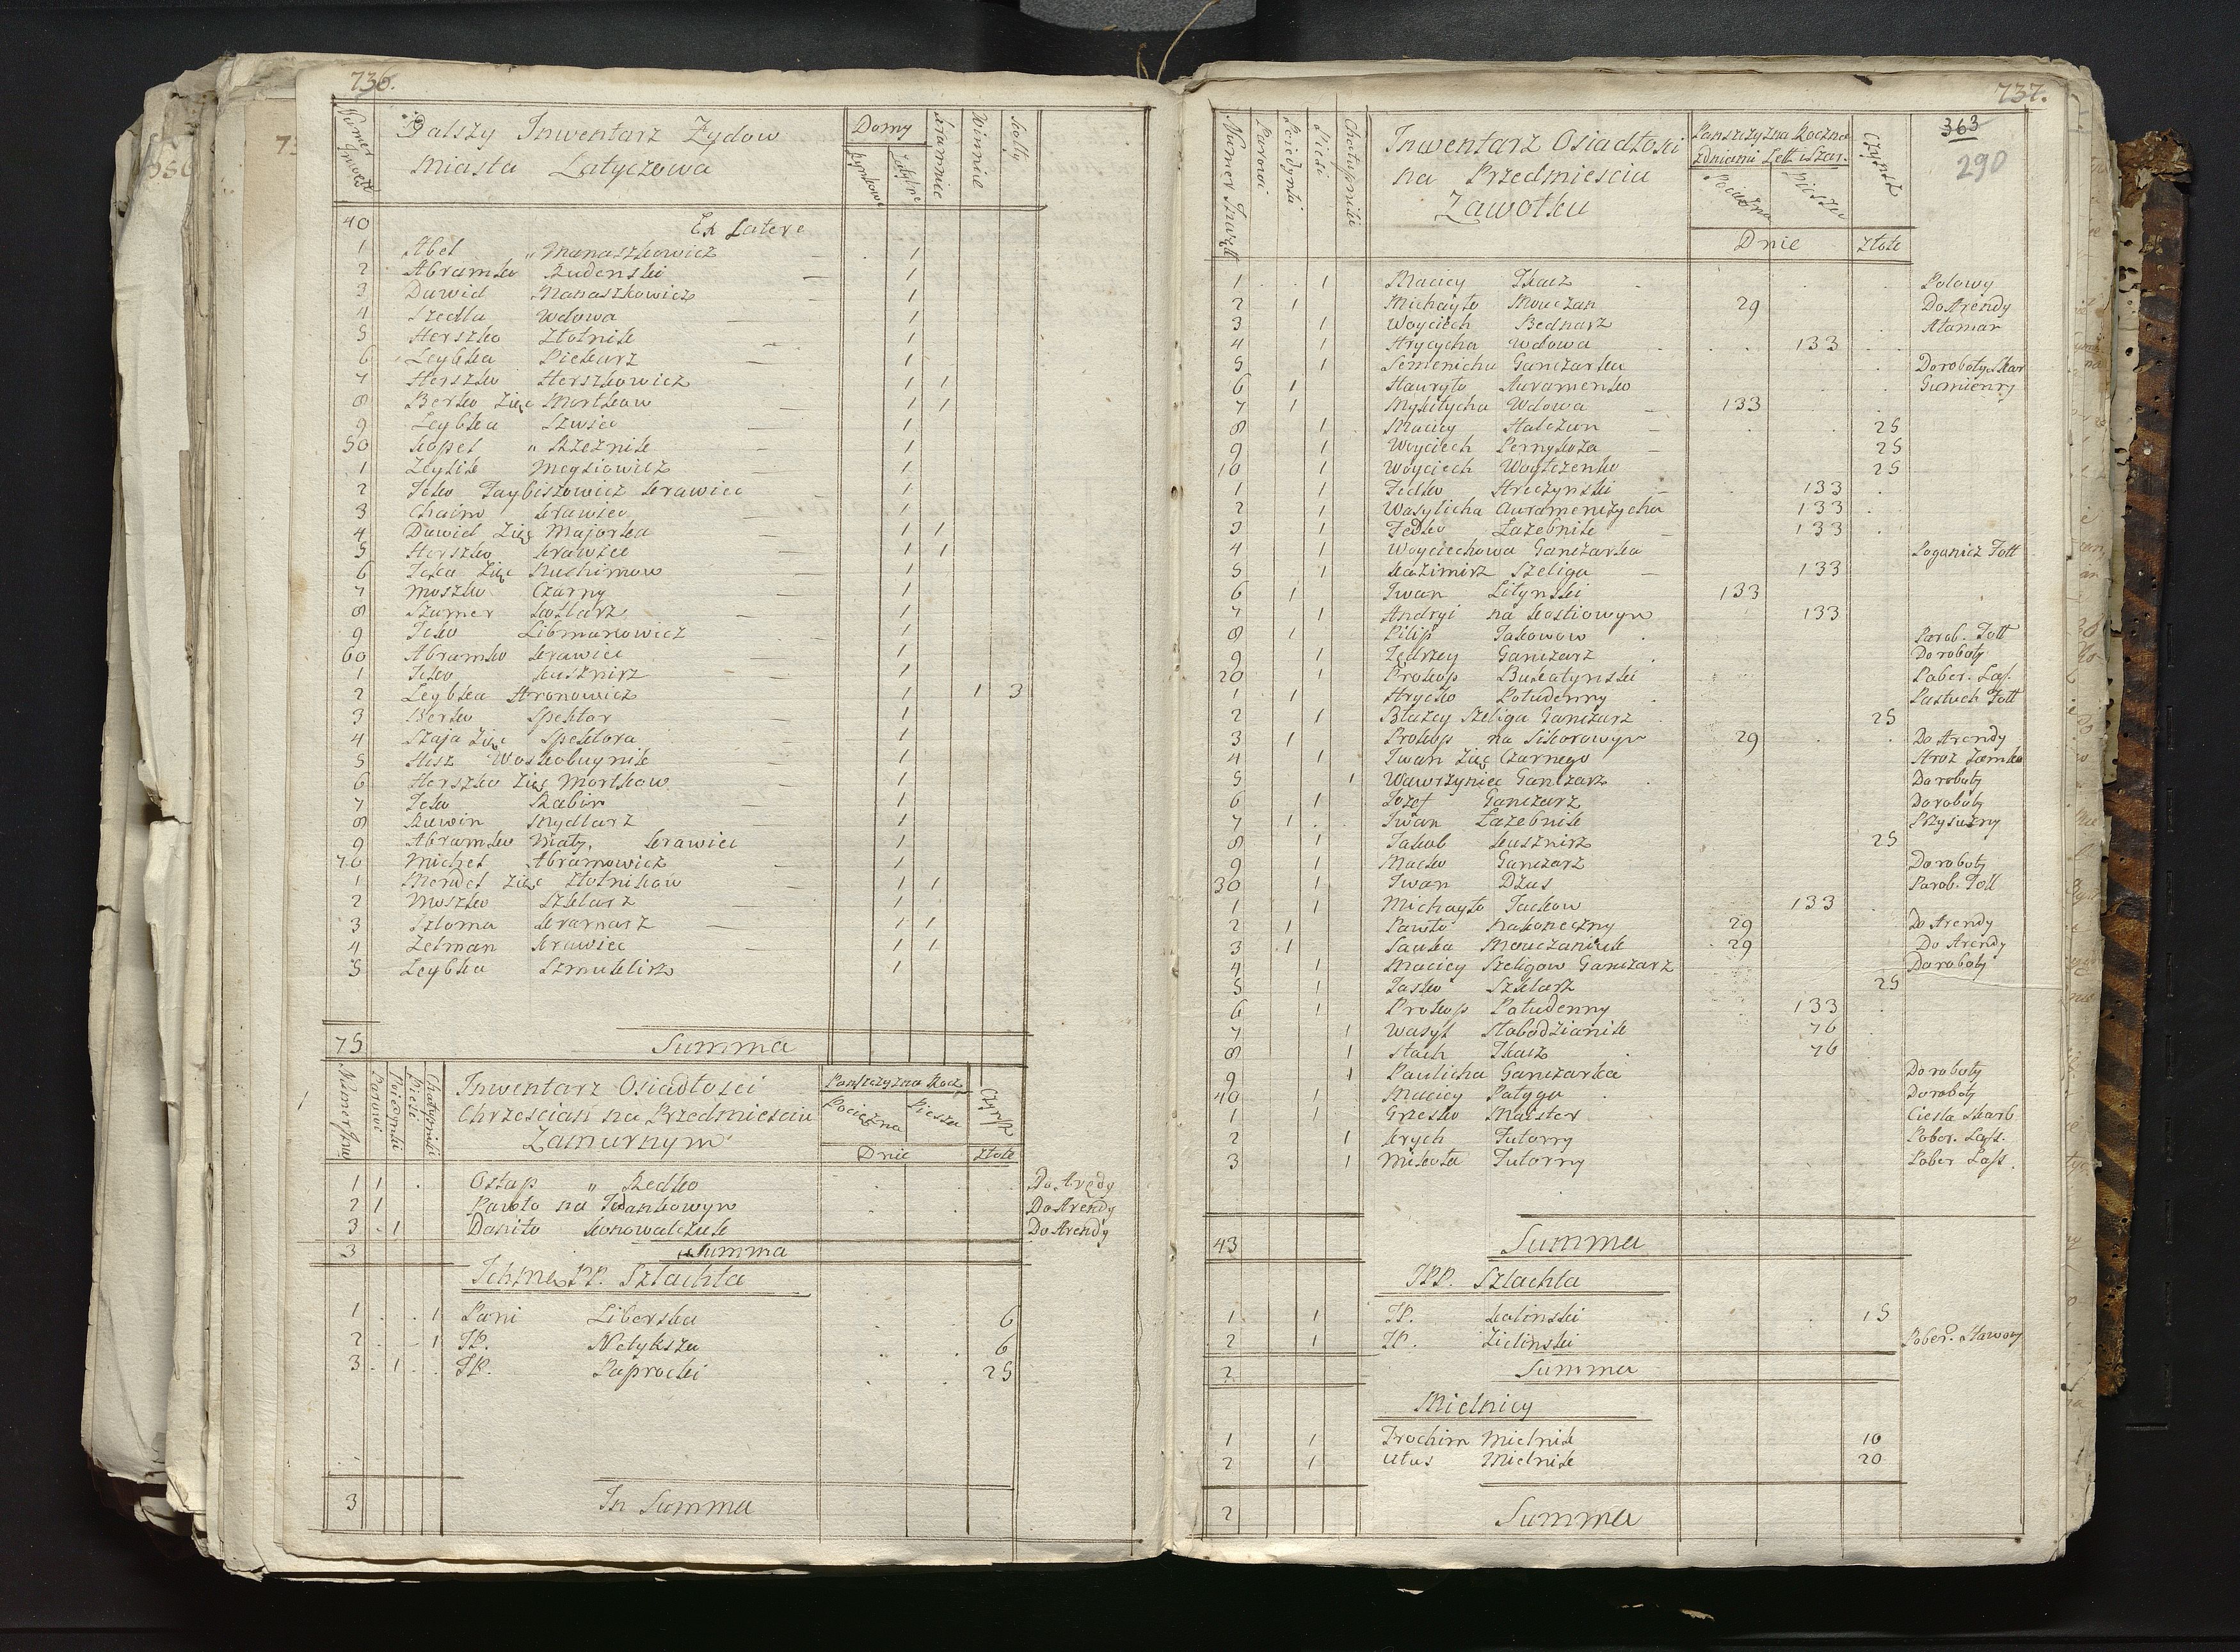 736.
Numer Inwent
Dalszy Inwentarz Zydow
Miasta Latyczowa
Domy
Rynkowe
Zatylne
Kramnic
Winnic
Kotły
40 Ex Latere
1 Abel „ Manaszkowicz 1
2 Abramko Rudenski 1
3 Dawid Manaszkowicz 1
4 Szedla Wdowa 1
5 Herszko Złotnik 1
6 Leybka Piekarz 1
7 Herszko Herszkowicz 1 1
8 Berko Zięc Mortkow 1 1
9 Leybka Szwiec 1
50 Kopel „ Rzeznik 1
1 Zeylik Meysiowicz 1
2 Icko Faybiszowicz Krawiec 1
3 Chaim Krawiec 1
4 Dawid Zięc Majorka 1 1
5 Herszko Krawiec 1 1
6 Icka Zięc Ruchimow 1
7 Moszko Czarny 1
8 Szamer Kotlarz 1
9 Icko Libmanowicz 1
60 Abramko Krawiec 1
1 Icko Kusznirz 1
2 Leybka Aronowicz 1 1 3
3 Berko Spektor 1
4 Szaja Zięc Spektora 1
5 Hisz Woskoboynik 1
6 Herszko Zięc Mortkow 1
7 Icko Rabin 1
8 Ruwin Mydlarz 1
9 Abramko Mały, Krawiec 1
70 Michel Abramowicz 1
1 Mendel Zięc Złotnikow 1 1
2 Moszko Szklarz 1
3 Szloma Kramarz 1 1
4 Zelman Krawiec 1 1
5 Leybka Szmuklirz 1
75 Summa
Numer Inw
Parowi
Poiedynki
Piesi
Chałupniki
Inwentarz Osiadłosci
Chrzescian na Przedmiesciu
Zamurnym
Panszczyzna Rocz.
Pociężna
Piesza
Czynsz
Dnie
Złote
1 1 Ostap „ Redko Do Arędy
2 1 Pawło na Iwankowym Do Arendy
3 1 Daniło Konowalczuk Do Arendy
3 Summa
Ichmc PP. Szlachta
1 1 Pani Liberska 6
2 1 JP. Netyksza 6
3 1 JP. Paprocki 25
3 In Summa
737.
Numer Inwent
Parowi
Poiedynki
Piesi
Chałupniki
Inwentarz Osiadłosci
na Przedmiesciu
Zawołku
Panszczyzna Roczna
zdniami Lett. i Szar.
Pociężna
Piesza
Czynsz
Dnie
Złote
363
290
1 1 Maciey Tkacz Polowy
2 1 Michayło Mouczan 29 Do Arendy
3 1 Woyciech Bednarz Ataman
4 1 Hrycycha Wdowa 133
5 1 Semenicha Ganczarka Do roboty Skar
6 1 Hauryło Auramenko Gumienny
7 1 Mykitycha Wdowa 133
8 1 Maciey Halczun 25
9 1 Woyciech Pernykoza 25
10 1 Woyciech Woytczenko 25
1 1 Fedko Hreczynski 133
2 1 Wasylicha Auramenczycha 133
3 1 Fedko Łazebnik 133
4 1 Woyciechowa Ganczarka Poganicz Foll
5 1 Kazimirz Szeliga 133
6 1 Iwan Litynski 133
7 1 Andryi na Kostiowym 133
8 1 Pilip Jakowow Parob. Foll
9 1 Jędrzey Ganczarz Do roboty
20 1 Prokop Bukatynski Pober. Las.
1 1 Hrycko Połudenny Pastuch Foll
2 1 Błażey Szeliga Ganczarz 25
3 1 Prokop na Sikorowym 29 Do Arendy
4 1 Iwan Zięc Czarnego Stroz Zamko
5 1 Wawrzyniec Ganczarz Do roboty
6 1 Jozef Ganczarz Do roboty
7 1 Iwan Łazebnik Przysiężny
8 1 Jakob Kusznirz 25
9 1 Macko Ganczarz Do roboty
30 1 Iwan Dżus Parob. Foll
1 1 Michayło Jackow 133
2 1 Pawło Nakoneczny 29 Do Arendy
3 1 Sawka Mouczaniuk 29 Do Arendy
4 1 Maciey Szeligow Ganczarz Do roboty
5 1 Jasko Szklarz 25
6 1 Prokop Połudenny 133
7 1 Wasyl Słobodzianik 76
8 1 Stach Tkacz 76
9 1 Paulicha Ganczarka Do roboty
40 1 Maciey Patyga Do roboty
1 1 Grzesko Maister Ciesla Skarb
2 1 Krych Futorny Pober. Lass.
3 1 Mikoła Futorny Pober Lass.
43 Summa
JPP. Szlachta
1 1 JP. Kalinski 15
2 1 JP. Zielinski Pober. Stawowy
2 Summa
Mielnicy
1 1 Trochim Mielnik 10
2 1 Ułas Mielnik 20
2 Summa